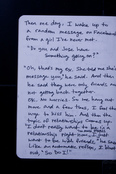 Then one day, I wake up to
a random message on Facebook
from a girl I've never met.
"Do you and Jose have
something going on?"
"Oh, that's my ex. She told me she
messaged you," he said. And then
he said they were only friends and
not getting back together.
OK, no worries. So we hang out
more and a few times, I feel the
urge to kiss him. And then the
topic of relationships comes up.
"I don't really want to be in a
relationship right now, I just
want to be with friends," he says.
Like an automatic reflex, I blurt
out, "So Do I!"